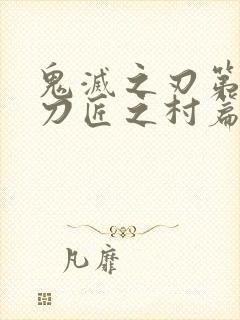 鬼滅之刃第
刀匠之村篇
凡靡